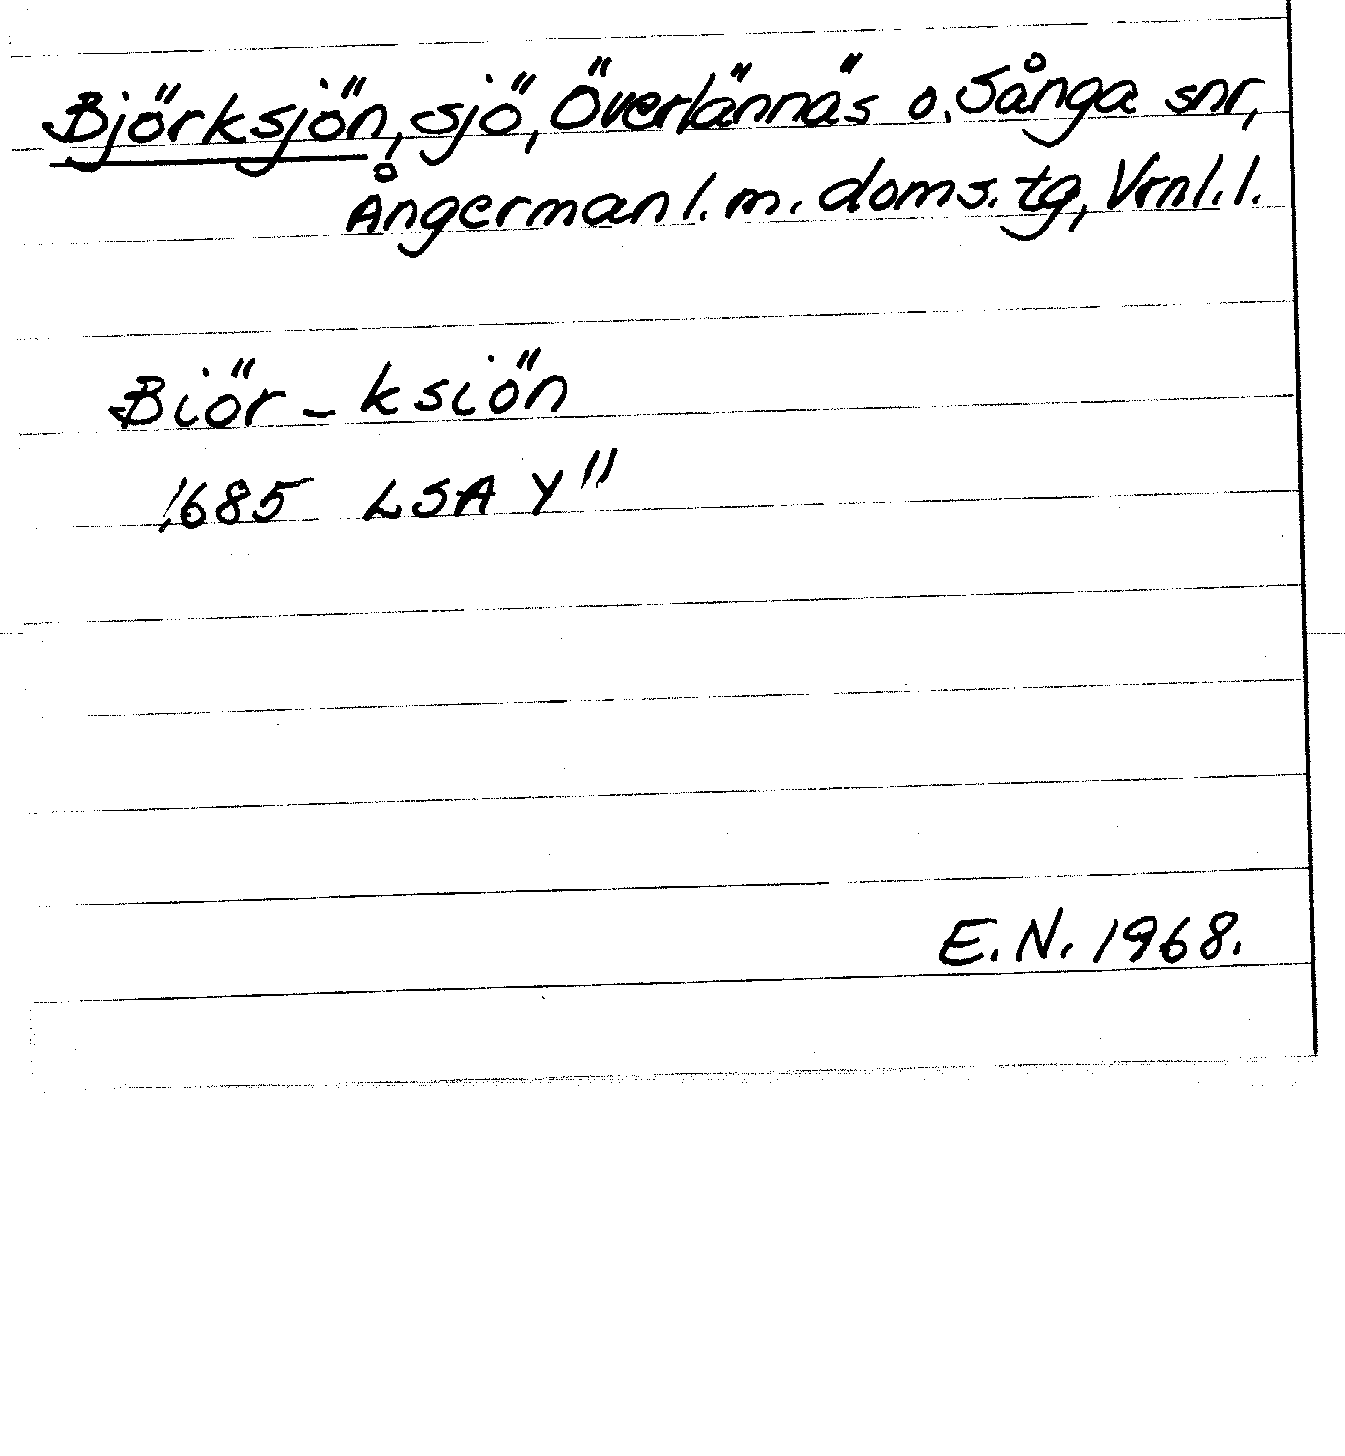 Björksjön, sjö, Överlännäs o. Sånga snr,
Ångermanl. m. doms. tg, Vrnl. l.
Biör - ksiön
1685 LSA Y"
E.N. 1968.